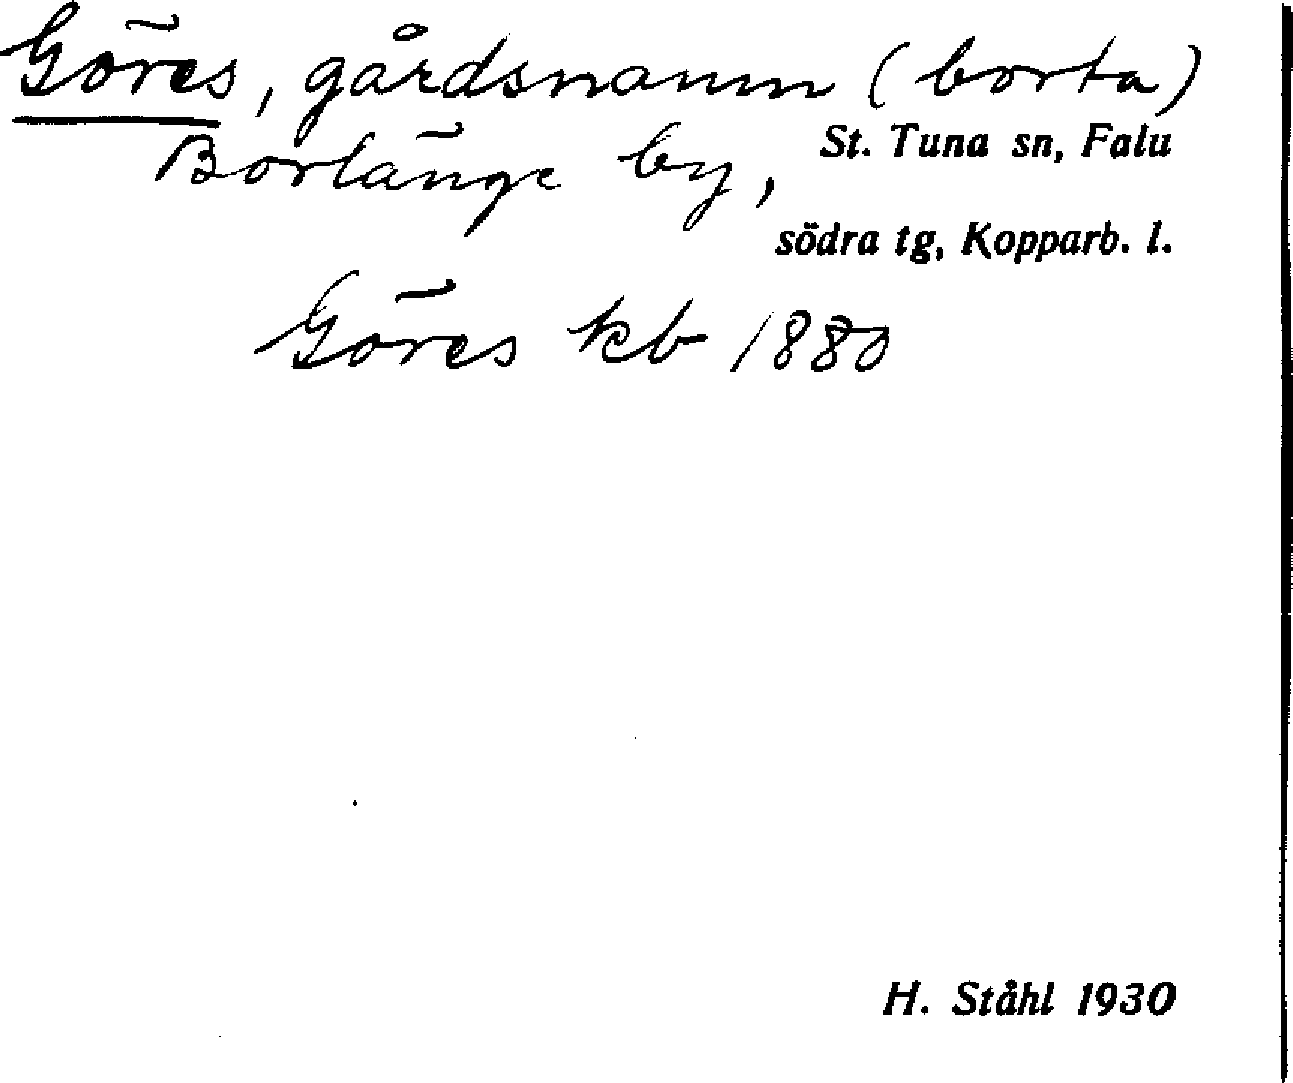 Göres, gårdsnamn (borta)
Borlänge by, St. Tuna sn, Falu
södra tg, Kopparb. l.
Göres kb 1880
H. Ståhl 1930